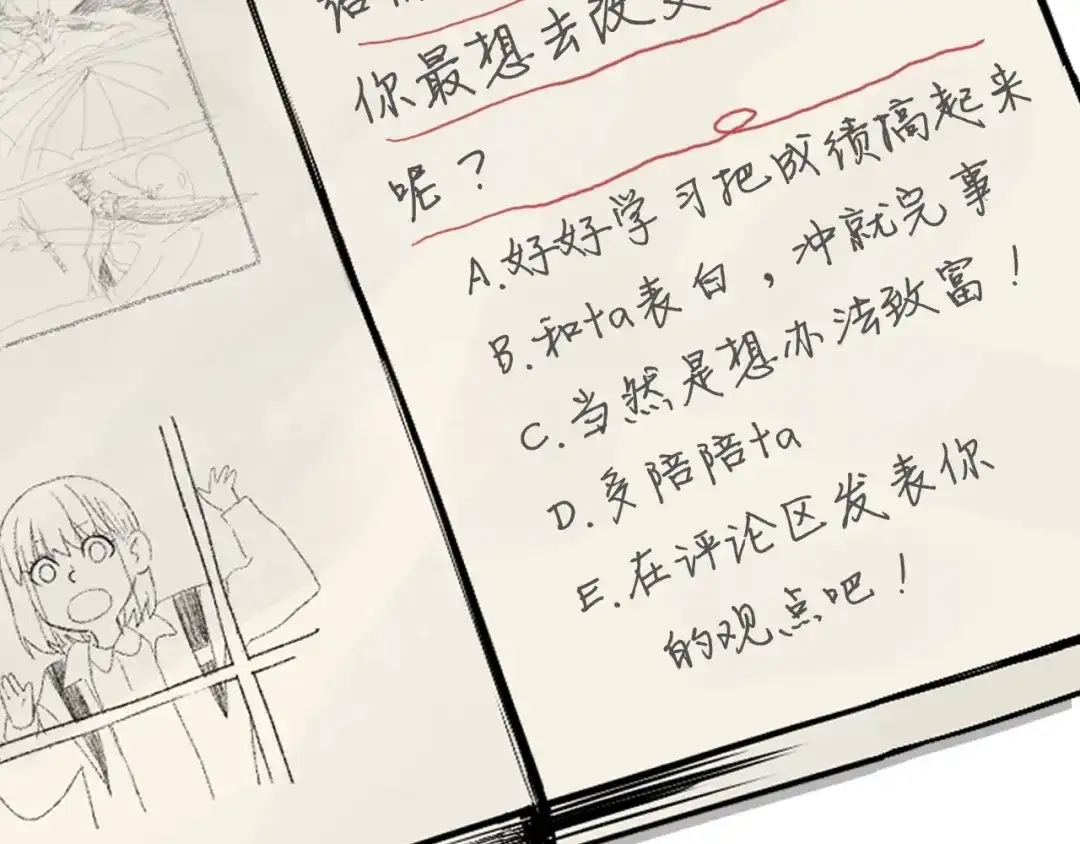 你最想去改变
呢？
A.好好学习把成绩搞起来
B.和ta表白，冲就完事
C.当然是想办法致富！
D.多陪陪ta
E.在评论区发表你
的观点吧！